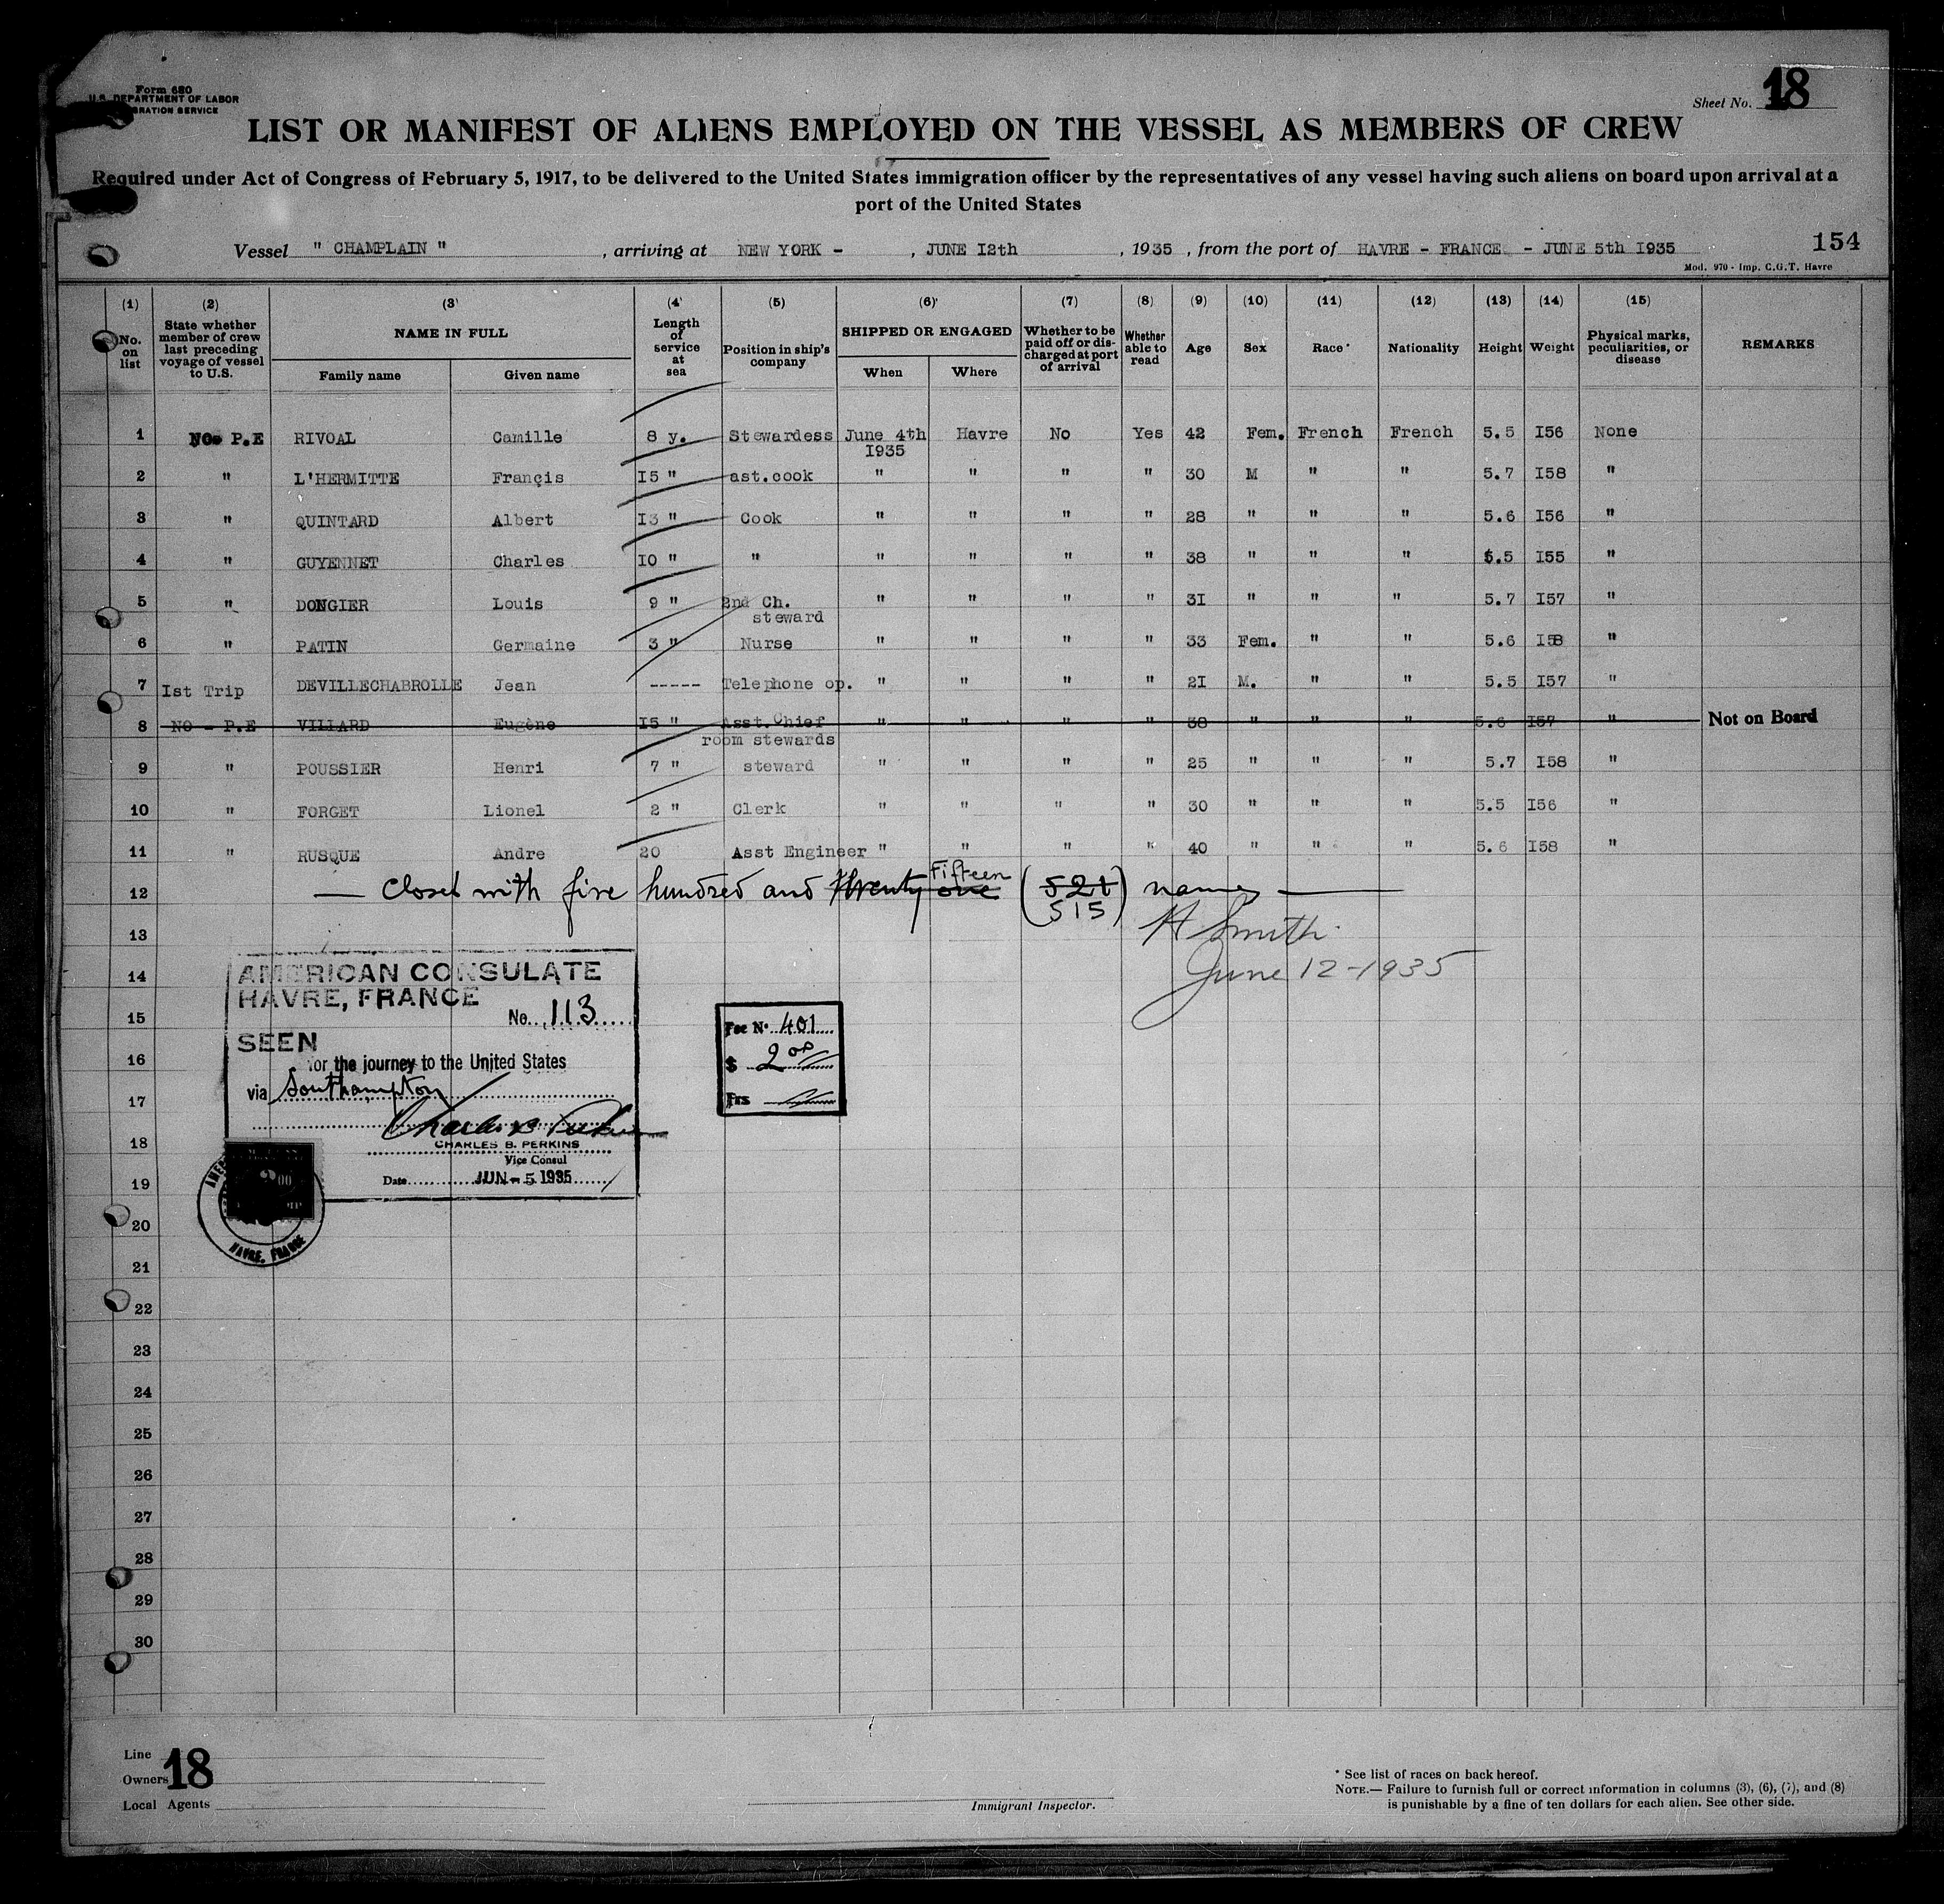 Form 680
U.S. DEPARTMENT OF LABOR
GRATION SERVICE
Sheet No. 18
LIST OR MANIFEST OF ALIENS EMPLOYED ON THE VESSEL AS MEMBERS OF CREW
Required under Act of Congress of February 5, 1917, to be delivered to the United States immigration officer by the representatives of any vessel having such aliens on board upon arrival at a
port of the United States
Vessel " CHAMPLAIN " , arriving at NEW YORK - , JUNE I2th , 1935 , from the port of HAVRE - FRANCE - JUNE 5th I935
154
Mod. 970 - Imp. C.G.T. Havre
(1) (2) (3) (4) (5) (6) (7) (8) (9) (10) (11) (12) (13) (14) (15)
No. on list State whether member of crew last preceding voyage of vessel to U.S. NAME IN FULL Family name Given name Length of service at sea Position in ship's company SHIPPED OR ENGAGED When Where Whether to be paid off or discharged at port of arrival Whether able to read Age Sex Race* Nationality Height Weight Physical marks, peculiarities, or disease REMARKS
1 NO- P.E RIVOAL Camille 8 y. Stewardess June 4th I935 Havre No Yes 42 Fem. French French 5.5 I56 None
2 " L'HERMITTE Françis I5 " ast.cook " " " " 30 M " " 5.7 I58 "
3 " QUINTARD Albert I3 " Cook " " " " 28 " " " 5.6 I56 "
4 " GUYENNET Charles I0 " " " " " " 38 " " " 5.5 I55 "
5 " DONGIER Louis 9 " 2nd Ch. steward " " " " 3I " " " 5.7 I57 "
6 " PATIN Germaine 3 " Nurse " " " " 33 Fem. " " 5.6 I58 "
7 Ist Trip DEVILLECHABROLLE Jean ----- Telephone op. " " " " 2I M. " " 5.5 I57 "
8 NO - P.E VILLARD Eugène I5 " Asst.Chief room stewards " " " " 38 " " " 5.6 I57 " Not on Board
9 " POUSSIER Henri 7 " steward " " " " 25 " " " 5.7 I58 "
10 " FORGET Lionel 2 " Clerk " " " " 30 " " " 5.5 I56 "
11 " RUSQUE Andre 20 Asst Engineer " " " " 40 " " " 5.6 I58 "
12 — Closed with five hundred and twenty one Fifteen (521) 515 names —
13 H Smith
14 June 12-1935
15
16
17
18
19
20
21
22
23
24
25
26
27
28
29
30
AMERICAN CONSULATE
HAVRE, FRANCE
No. 113
SEEN
for the journey to the United States
via Southampton
Charles B Perkins
CHARLES B. PERKINS
Vice Consul
Date JUN - 5 1935
HAVRE, FRANCE
Fee No. 401
$ 2 00
Frs
Line
Owners
18
Local Agents
Immigrant Inspector.
* See list of races on back hereof.
NOTE.— Failure to furnish full or correct information in columns (3), (6), (7), and (8)
is punishable by a fine of ten dollars for each alien. See other side.